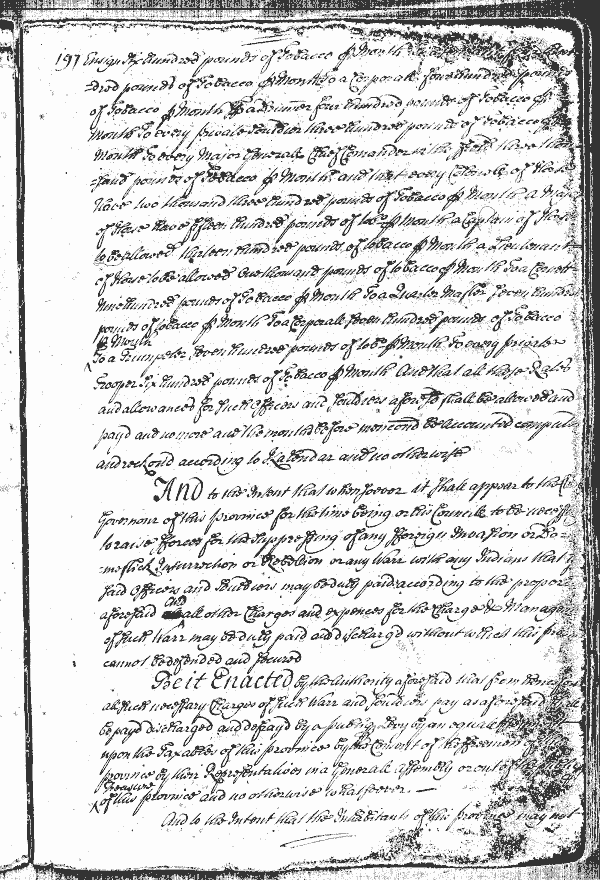 197 Ensign Six hundred pounds of Tobacco ꝑ Month
dred pounds of Tobacco ꝑ Month To a Corporall four hundred pounds
of Tobacco ꝑ Month To a Drummer four hundred pounds of Tobacco ꝑ
Month To every private Souldier three hundred pounds of Tobacco ꝑ
Month To every Major Generall Cheif Comander in the ffield three thou
=sand pounds of Tobacco ꝑ Month and that every Colonell of Horse
have two thousand three hundred pounds of Tobacco ꝑ Month a Major
of Horse have fifteen hundred pounds of tobo ꝑ Month a Captain of Horse
to be allowed thirteen hundred pounds of tobacco ꝑ Month a Lieutenant
of Horse to be allowed One thousand pounds of tobacco ꝑ Month To a Cornett
Nine hundred pounds of Tobacco ꝑ Month To a Quarter Master Seven hundred
pounds of tobacco ꝑ Month To a Corporall Seven hundred pounds of Tobacco
ꝑ Month
To a Trumpeter Seven hundred pounds of tobo ꝑ Month To every private
Trooper Six hundred pounds of Tobacco ꝑ Month And that all those Rates
and allowances for such Officers and Souldiers aforesd shall be allowed and
payd and no more and the months before menconed be accounted computed
and reckond according to Kalendar and no otherwise
And to the Intent that whensoever it shall appear to the
Governour of this Province for the time being or his Councill to be necessary
to raise fforces for the Suppressing of any fforeign Invasion or Do=
mestick Insurrection or Rebellion or any Warr with any Indians that
said Officers and Souldiers may be duly paid according to the propor
and
aforesaid all other Charges and expences for the Charge & Manageing
of such Warr may be duly paid and discharg'd without which this province
cannot be defended and secured
Be it Enacted by the Authority aforesaid that from henceforth
all such necessary Charges of such Warr and Souldiers pay as aforesaid shall
be payd discharged and defrayd by a publick Levy by an equall
upon the Taxables of this province by the Consent of the ffreemen of
province by their Representatives in a Generall Assembly or out of the
Treasure
of this province and no otherwise whatsoever.
And to the Intent that the Inhabitants of this province may not